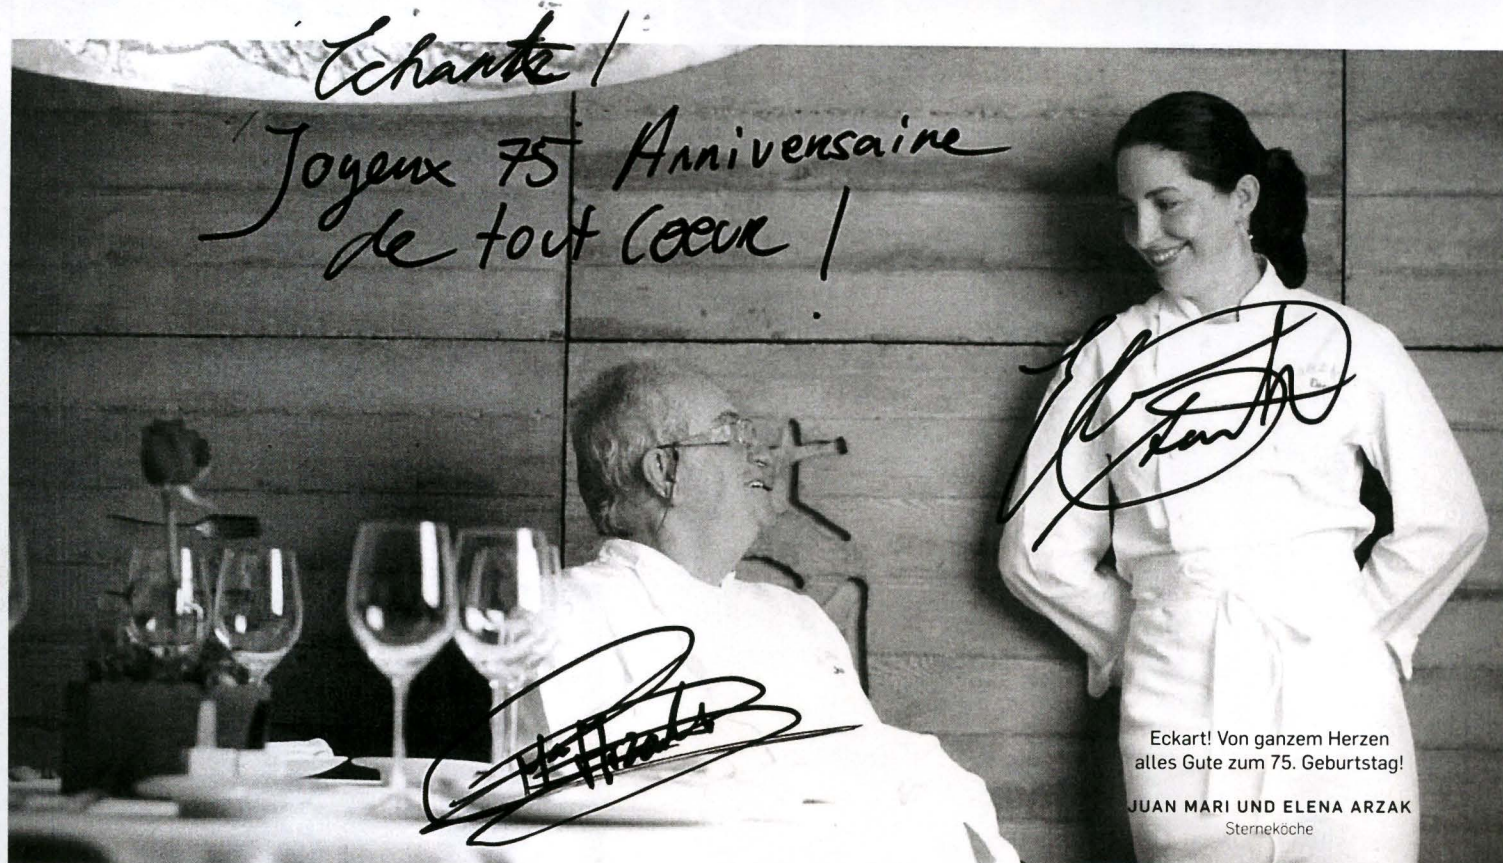 Echantz!
Joyeux 75 Anniversaire
de tout Coeur!
Eckart! Von ganzem Herzen
alles Gute zum 75. Geburtstag!
JUAN MARI UND ELENA ARZAK
Sterneköche